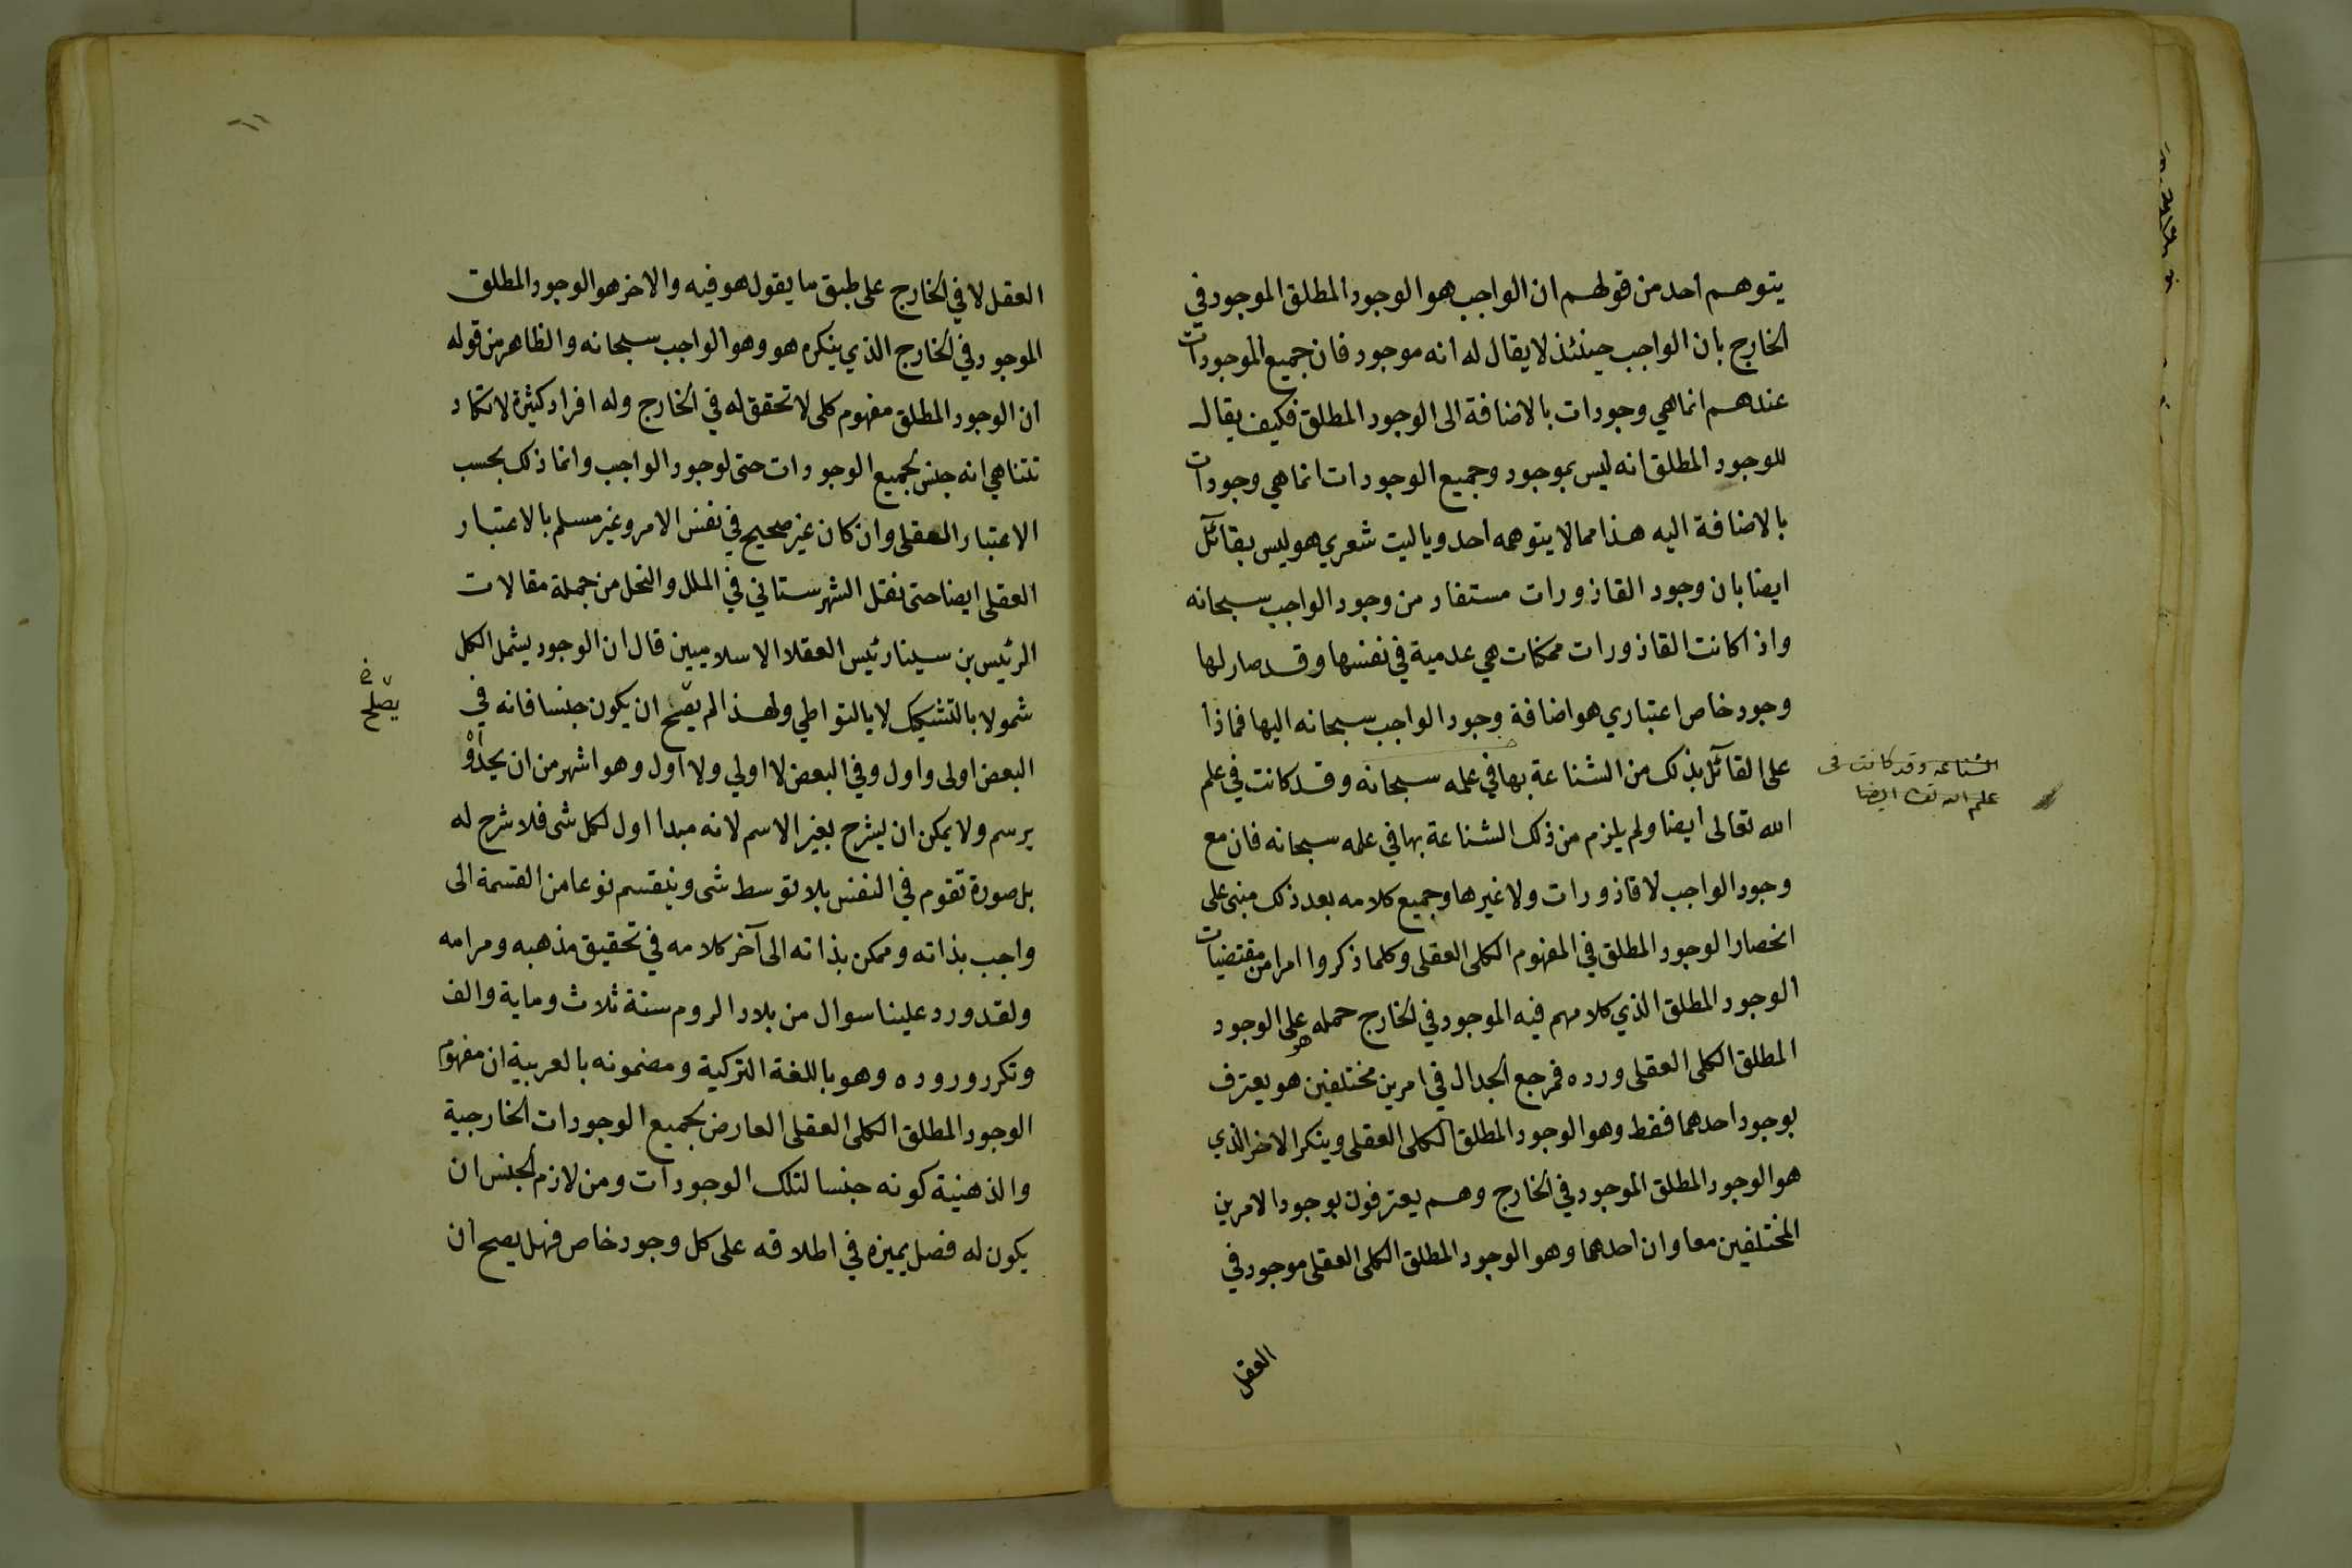 يتوهم احد من قولهم ان الواجب هو الوجود المطلق الموجود في
الخارج بان الواجب حينئذ لا يقال له انه موجود فان جميع الموجودات
عندهم انما هي وجودات بالاضافة الى الوجود المطلق فكيف يقال
للوجود المطلق انه ليس بموجود وجميع الوجودات انما هي وجودات
بالاضافة اليه هذا مما لا يتوهمه احد ويا ليت شعري هو ليس بقائل
ايضا بان وجود القاذورات مستفاد من وجود الواجب سبحانه
واذا كانت القاذورات ممكنات هي عدمية في نفسها وقد صار لها
وجود خاص اعتباري هو اضافة وجود الواجب سبحانه اليها فماذا
على القائل بذلك من الشناعة بها في علمه سبحانه وقد كانت في علم
الشناعة وقد كانت في
علم الله تعالى ايضا
الله تعالى ايضا ولم يلزم من ذلك الشناعة بها في علمه سبحانه فان مع
وجود الواجب لا قاذورات ولا غيرها وجميع كلامه بعد ذلك مبنى على
انحصار الوجود المطلق في المفهوم الكلى العقلى وكلما ذكروا امرا من مقتضيات
الوجود المطلق الذي كلامهم فيه الموجود في الخارج حمله هو على الوجود
المطلق الكلى العقلى ورده فرجع الجدال في امرين مختلفين هو يعترف
بوجود احدهما فقط وهو الوجود المطلق الكلى العقلى وينكر الاخر الذي
هو الوجود المطلق الموجود في الخارج وهم يعترفون بوجود الامرين
المختلفين معا وان احدهما وهو الوجود المطلق الكلى العقلى موجود في
العقل
العقل لا في الخارج على طبق ما يقوله هو فيه والاخر هو الوجود المطلق
الموجود في الخارج الذي ينكره هو وهو الواجب سبحانه والظاهر من قوله
ان الوجود المطلق مفهوم كلى لا تحقق له في الخارج وله افراد كثيرة لا تكاد
تتناهي انه جنس لجميع الوجودات حتى لوجود الواجب وانما ذلك بحسب
الاعتبار العقلى وان كان غير صحيح في نفس الامر وغير مسلم بالاعتبار
العقلى ايضا حتى نقل الشهرستاني في الملل والنحل من جملة مقالات
الرئيس بن سينا رئيس العقلا الاسلاميين قال ان الوجود يشمل الكل
شمولا بالتشكيك لا بالتواطي ولهذا لم يصح ان يكون جنسا فانه في
يصلح
البعض اولى واول وفي البعض لا اولي ولا اول وهو اشهر من ان يحد او
يرسم ولا يمكن ان يشرح بغير الاسم لانه مبدا اول لكل شى فلا شرح له
بل صورة تقوم في النفس بلا توسط شى وينقسم نوعا من القسمة الى
واجب بذاته وممكن بذاته الى آخر كلامه في تحقيق مذهبه ومرامه
ولقد ورد علينا سوال من بلاد الروم سنة ثلاث وماية والف
وتكرر وروده وهو باللغة التركية ومضمونه بالعربية ان مفهوم
الوجود المطلق الكلى العقلى العارض لجميع الوجودات الخارجية
والذهنية كونه جنسا لتلك الوجودات ومن لازم الجنس ان
يكون له فصل يميزه في اطلاقه على كل وجود خاص فهل يصح ان